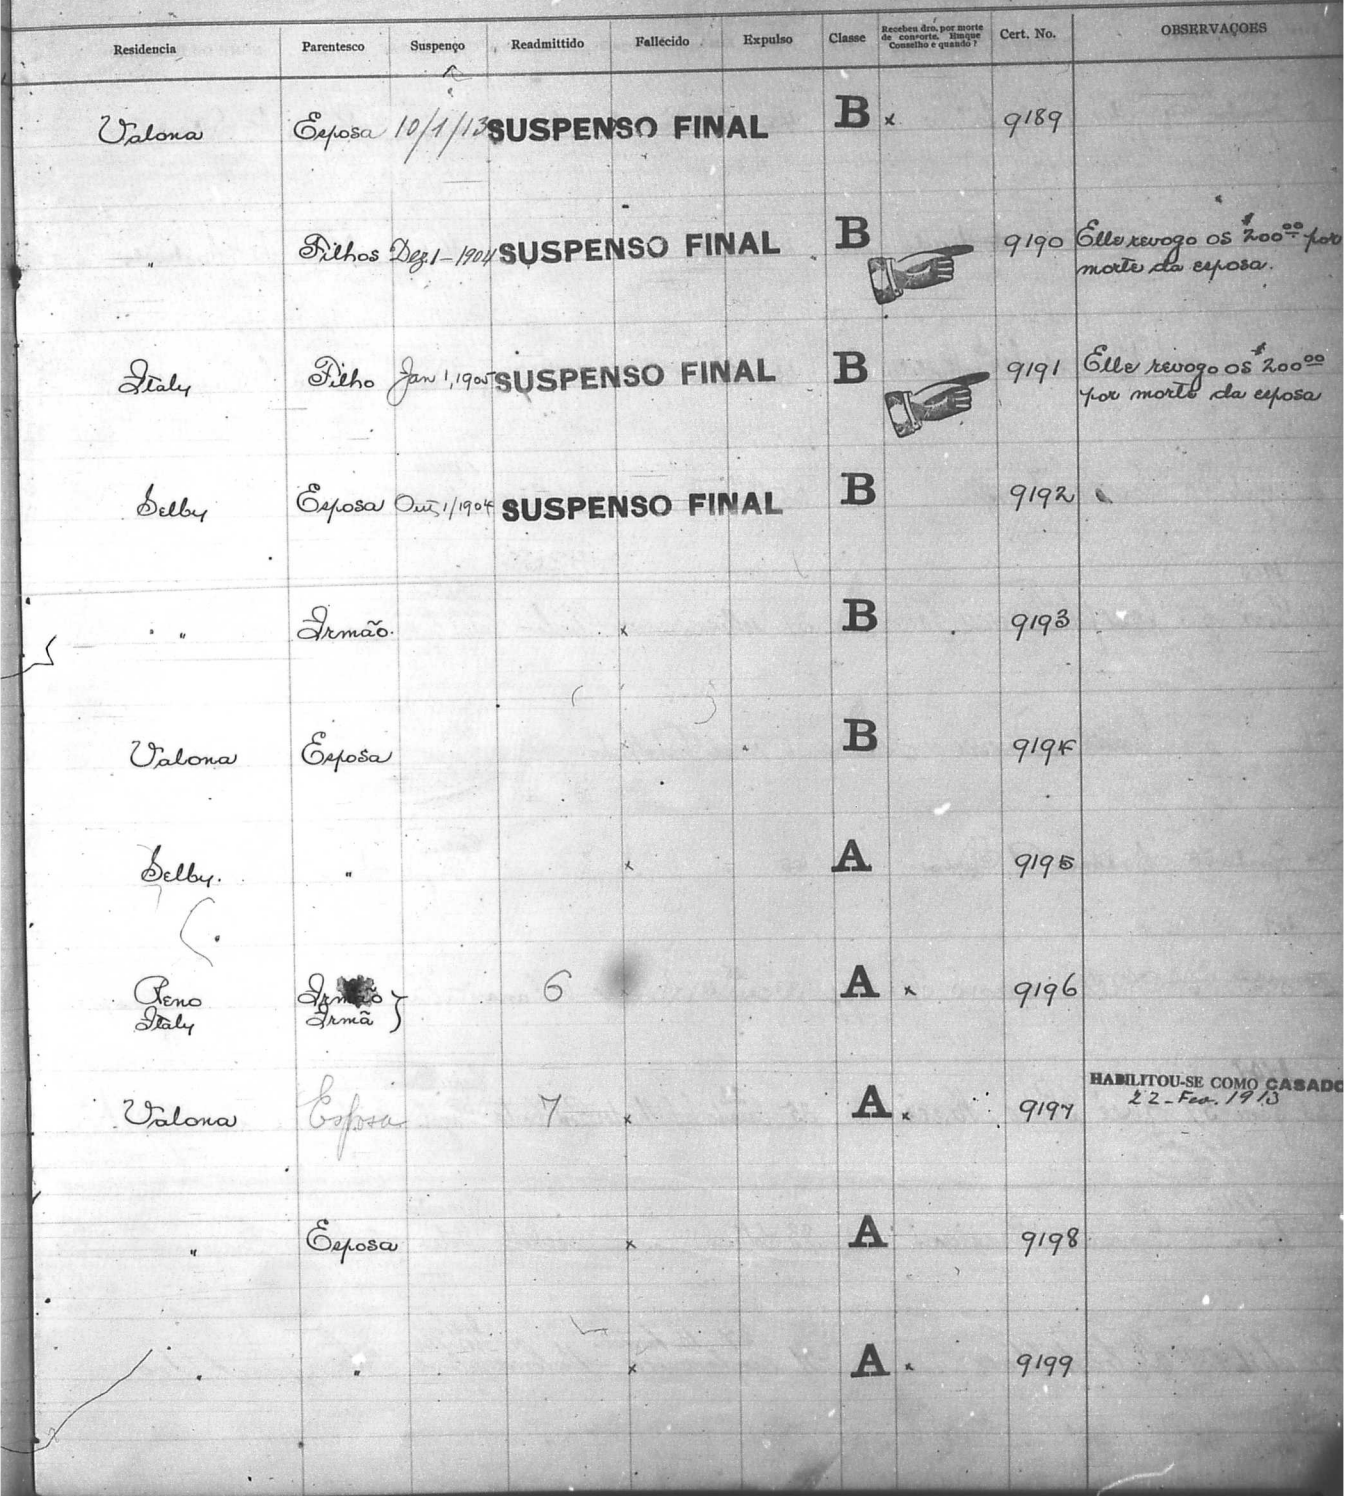 Residencia Parentesco Suspenço Readmittido Fallecido Expulso Classe Recebeu dro. por morte de consorte. Emque Conselho e quando? Cert. No. OBSERVAÇOES
Valona Esposa 10/1/13 SUSPENSO FINAL B x 9189
" Filhos Dez. 1-1904 SUSPENSO FINAL B 9190 Elle revogo os $200⁰⁰ por
morte da esposa.
Italy Filho Jan 1, 1905 SUSPENSO FINAL B 9191 Elle revogo os $200⁰⁰
por morte da esposa
Selby Esposa Out, 1/1904 SUSPENSO FINAL B 9192
" Irmão. x B 9193
Valona Esposa B 9194
Selby. " x A 9195
Reno Irmão } 6 A x 9196
Italy Irmã
HABILITOU-SE COMO CASADO
22-Fev. 1913
Valona Esposa 7 x A x 9197
" Esposa x A 9198
" " x A x 9199